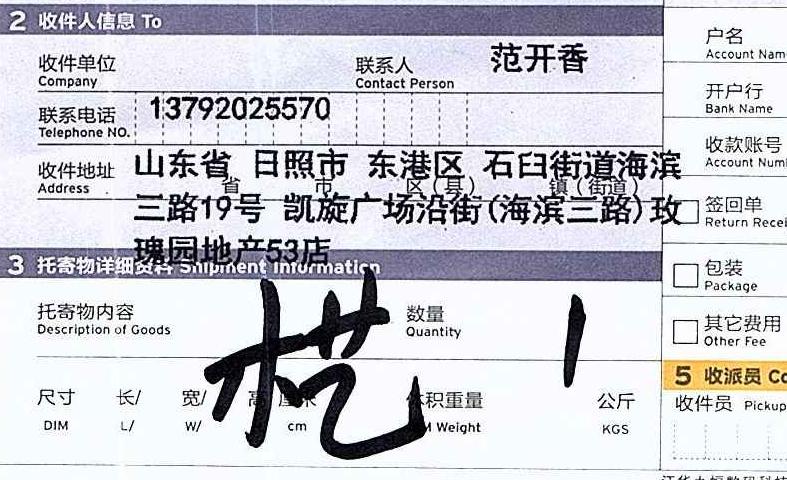 2 收件人信息 To
收件单位
Company
联系人
Contact Person
范开香
联系电话
Telephone NO.
13792025570
收件地址
Address
山东省 日照市 东港区 石臼街道海滨
省 市 区(县) 镇(街道)
三路19号 凯旋广场沿街(海滨三路)玫
瑰园地产53店
3 托寄物详细资料 Shipment Information
托寄物内容
Description of Goods
数量
Quantity
1
尺寸 长/ 宽/ 高 厘米
DIM L/ W/ cm
体积重量
Weight
公斤
KGS
户名
Account Nam
开户行
Bank Name
收款账号
Account Num
签回单
Return Recei
包装
Package
其它费用
Other Fee
5 收派员 Co
收件员 Pickup